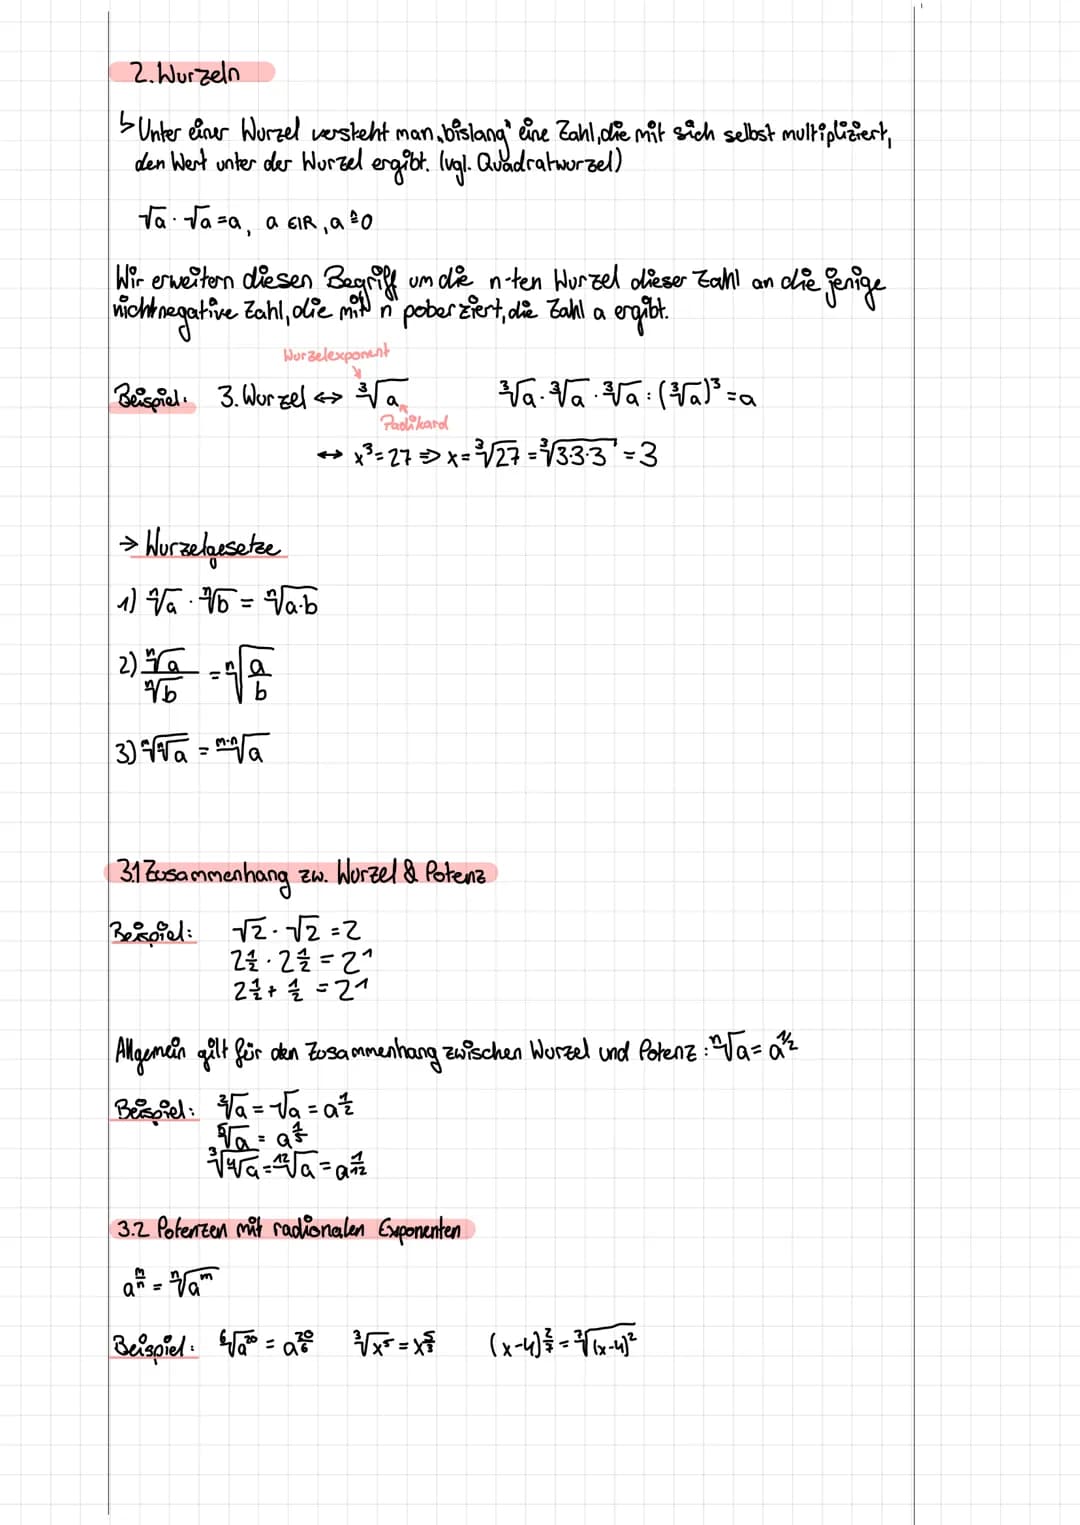 2. Wurzeln
↳ Unter einer Wurzel versteht man „bislang" eine Zahl, die mit sich selbst multipliziert,
den Wert unter der Wurzel ergibt. (vgl. Quadratwurzel)
√a · √a = a, a ∈ IR, a ≥ 0
Wir erweitern diesen Begriff um die n-ten Wurzel dieser Zahl an die jenige
nichtnegative Zahl, die mit n poberziert, die Zahl a ergibt.
Wurzelexponent
Beispiel: 3. Wurzel ↔ ³√a ³√a · ³√a · ³√a : (³√a)³ = a
Padikard
↔ x³ = 27 ⇒ x = ³√27 = ³√3·3·3 = 3
→ Wurzelgesetze
1) ⁿ√a · ⁿ√b = ⁿ√a·b
2) ⁿ√a / ⁿ√b = ⁿ√a/b
3) ᵐ√ⁿ√a = ᵐ·ⁿ√a
3.1 Zusammenhang zw. Wurzel & Potenz
Beispiel: √2 · √2 = 2
2½ · 2½ = 2¹
2½ + ½ = 2¹
Allgemein gilt für den Zusammenhang zwischen Wurzel und Potenz: ⁿ√a = a^1/2
Beispiel: ²√a = √a = a^1/2
⁵√a = a^1/5
³√⁴√a = ¹²√a = a^1/12
3.2 Potenzen mit radionalen Exponenten
a^m/n = ⁿ√a^m
Beispiel: ⁶√a²⁰ = a^20/6 ³√x⁵ = x^5/3 (x-4)^2/3 = ³√(x-4)²